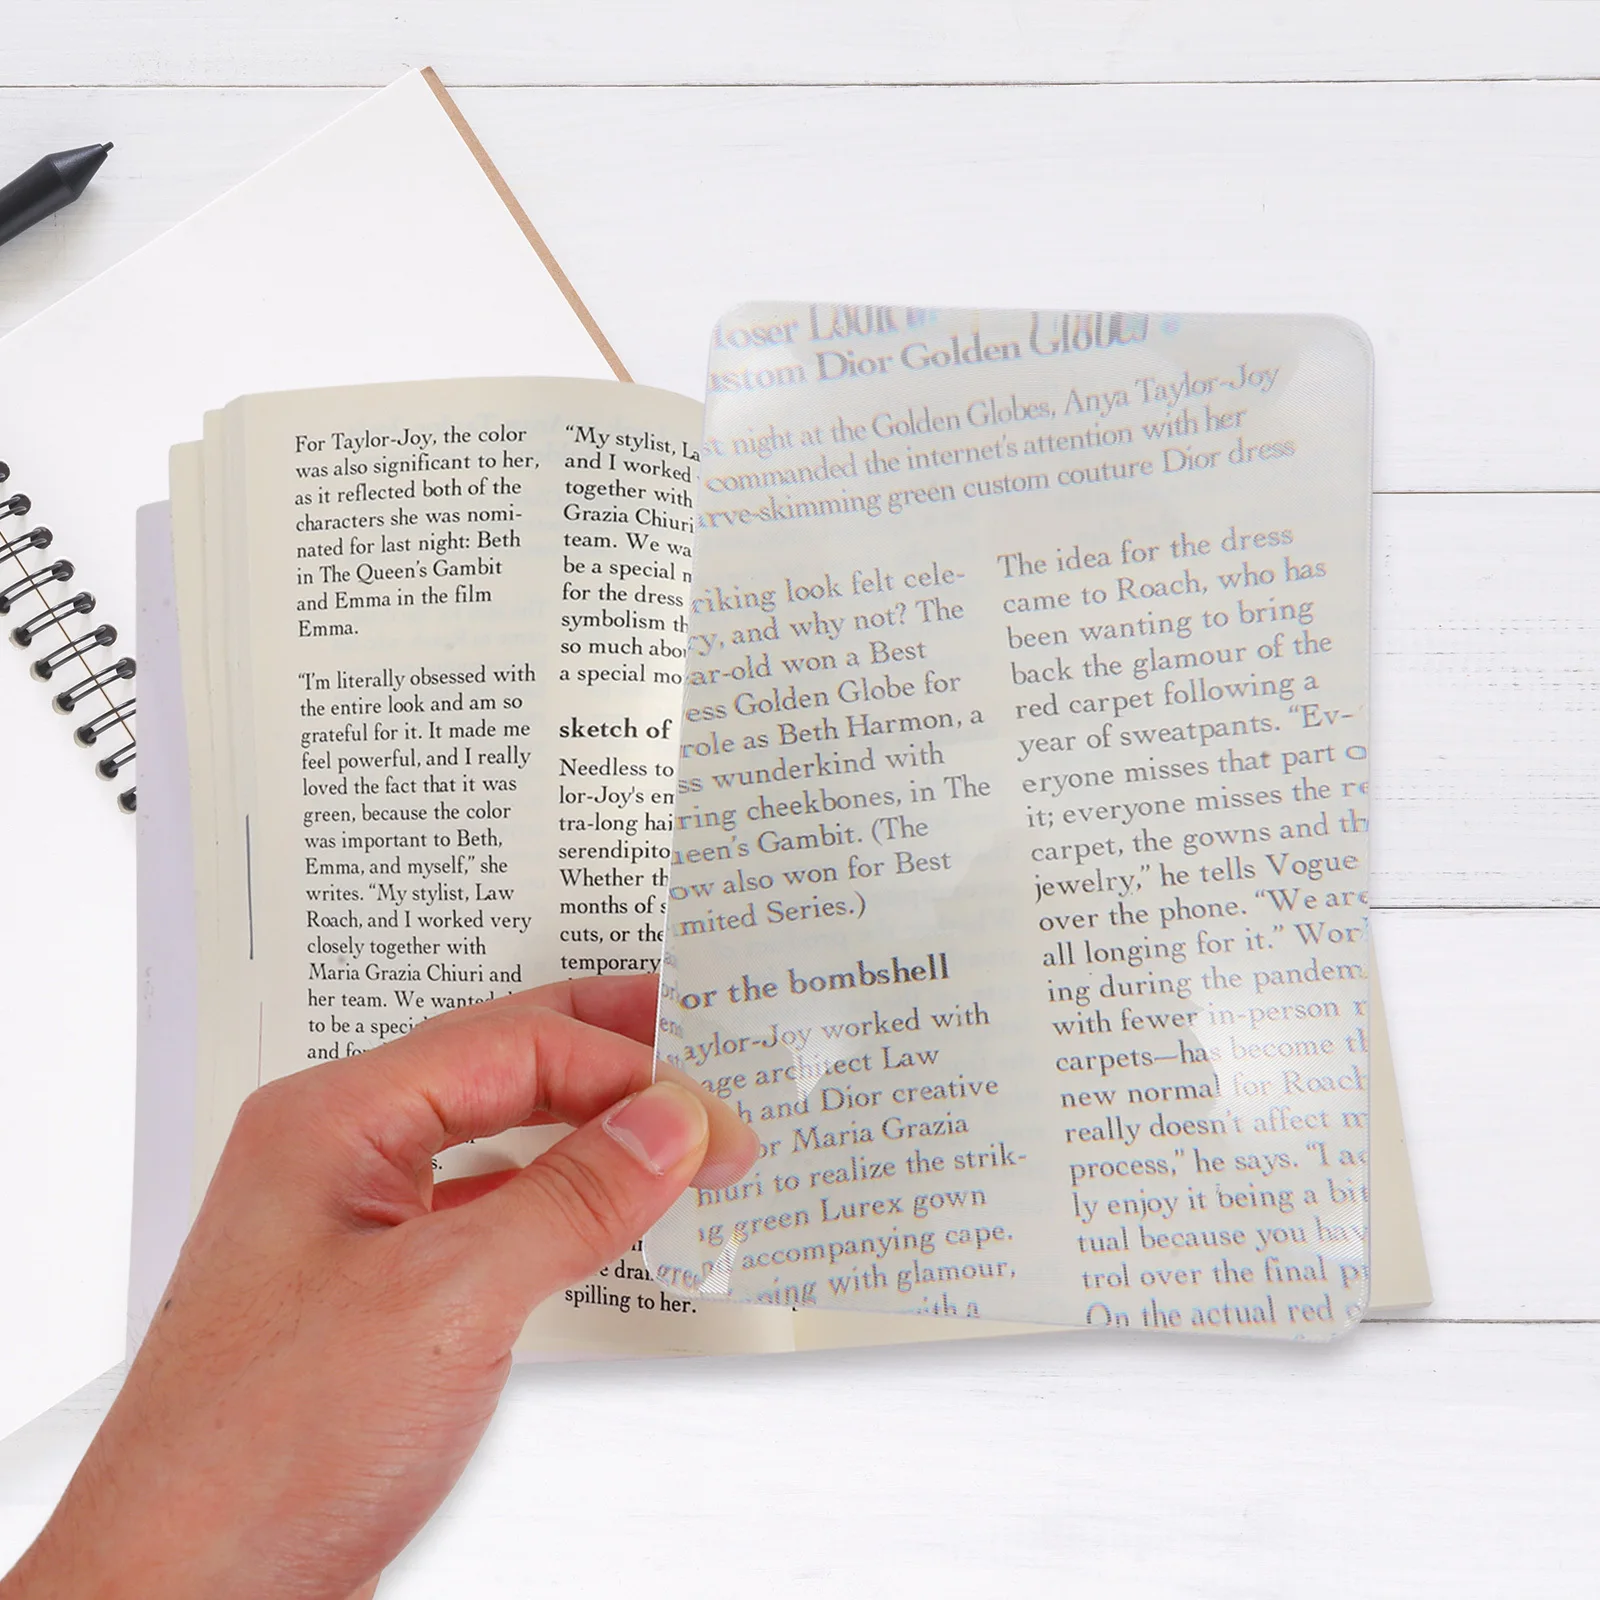 For Taylor-Joy, the color
was also significant to her,
as it reflected both of the
characters she was nomi-
nated for last night: Beth
in The Queen's Gambit
and Emma in the film
Emma.
“I'm literally obsessed with
the entire look and am so
grateful for it. It made me
feel powerful, and I really
loved the fact that it was
green, because the color
was important to Beth,
Emma, and myself,” she
writes. “My stylist, Law
Roach, and I worked very
closely together with
Maria Grazia Chiuri and
her team. We wanted
to be a speci
and fo
s.
“My stylist, La
and I worked
together with
Grazia Chiuri
team. We wa
be a special m
for the dress
symbolism th
so much abou
a special mo
sketch of
Needless to
lor-Joy's en
tra-long hai
serendipito
Whether th
months of s
cuts, or the
temporary
e dra
spilling to her.
loser Look
ustom Dior Golden Globes
st night at the Golden Globes, Anya Taylor-Joy
commanded the internet's attention with her
urve-skimming green custom couture Dior dress
riking look felt cele-
ry, and why not? The
ar-old won a Best
ess Golden Globe for
role as Beth Harmon, a
ss wunderkind with
ring cheekbones, in The
ueen's Gambit. (The
ow also won for Best
mited Series.)
or the bombshell
aylor-Joy worked with
age architect Law
h and Dior creative
or Maria Grazia
hiuri to realize the strik-
ng green Lurex gown
accompanying cape.
ping with glamour,
with a
The idea for the dress
came to Roach, who has
been wanting to bring
back the glamour of the
red carpet following a
year of sweatpants. “Ev-
eryone misses that part o
it; everyone misses the re
carpet, the gowns and th
jewelry,” he tells Vogue
over the phone. “We are
all longing for it.” Wor
ing during the pandem
with fewer in-person r
carpets—has become th
new normal for Roach
really doesn't affect m
process,” he says. “I ac
ly enjoy it being a bit
tual because you hav
trol over the final pr
On the actual red